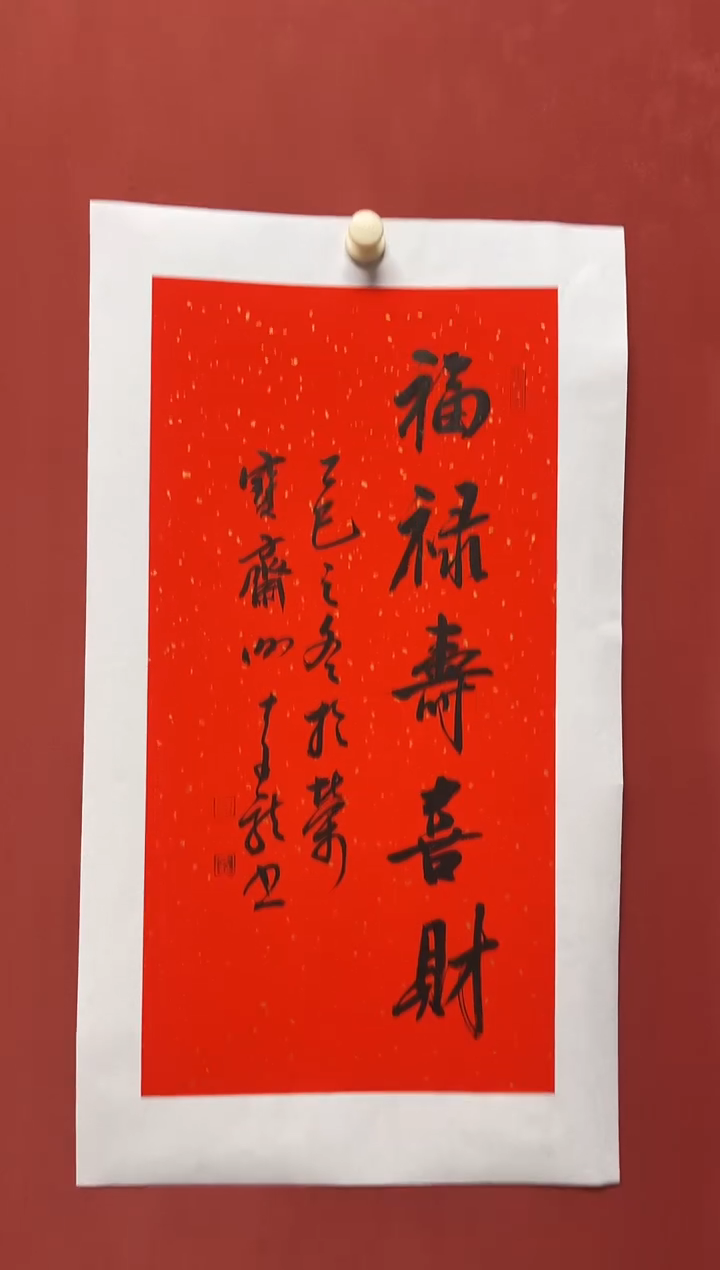 福禄壽喜財
乙巳之冬於榮
寶齋
龍書